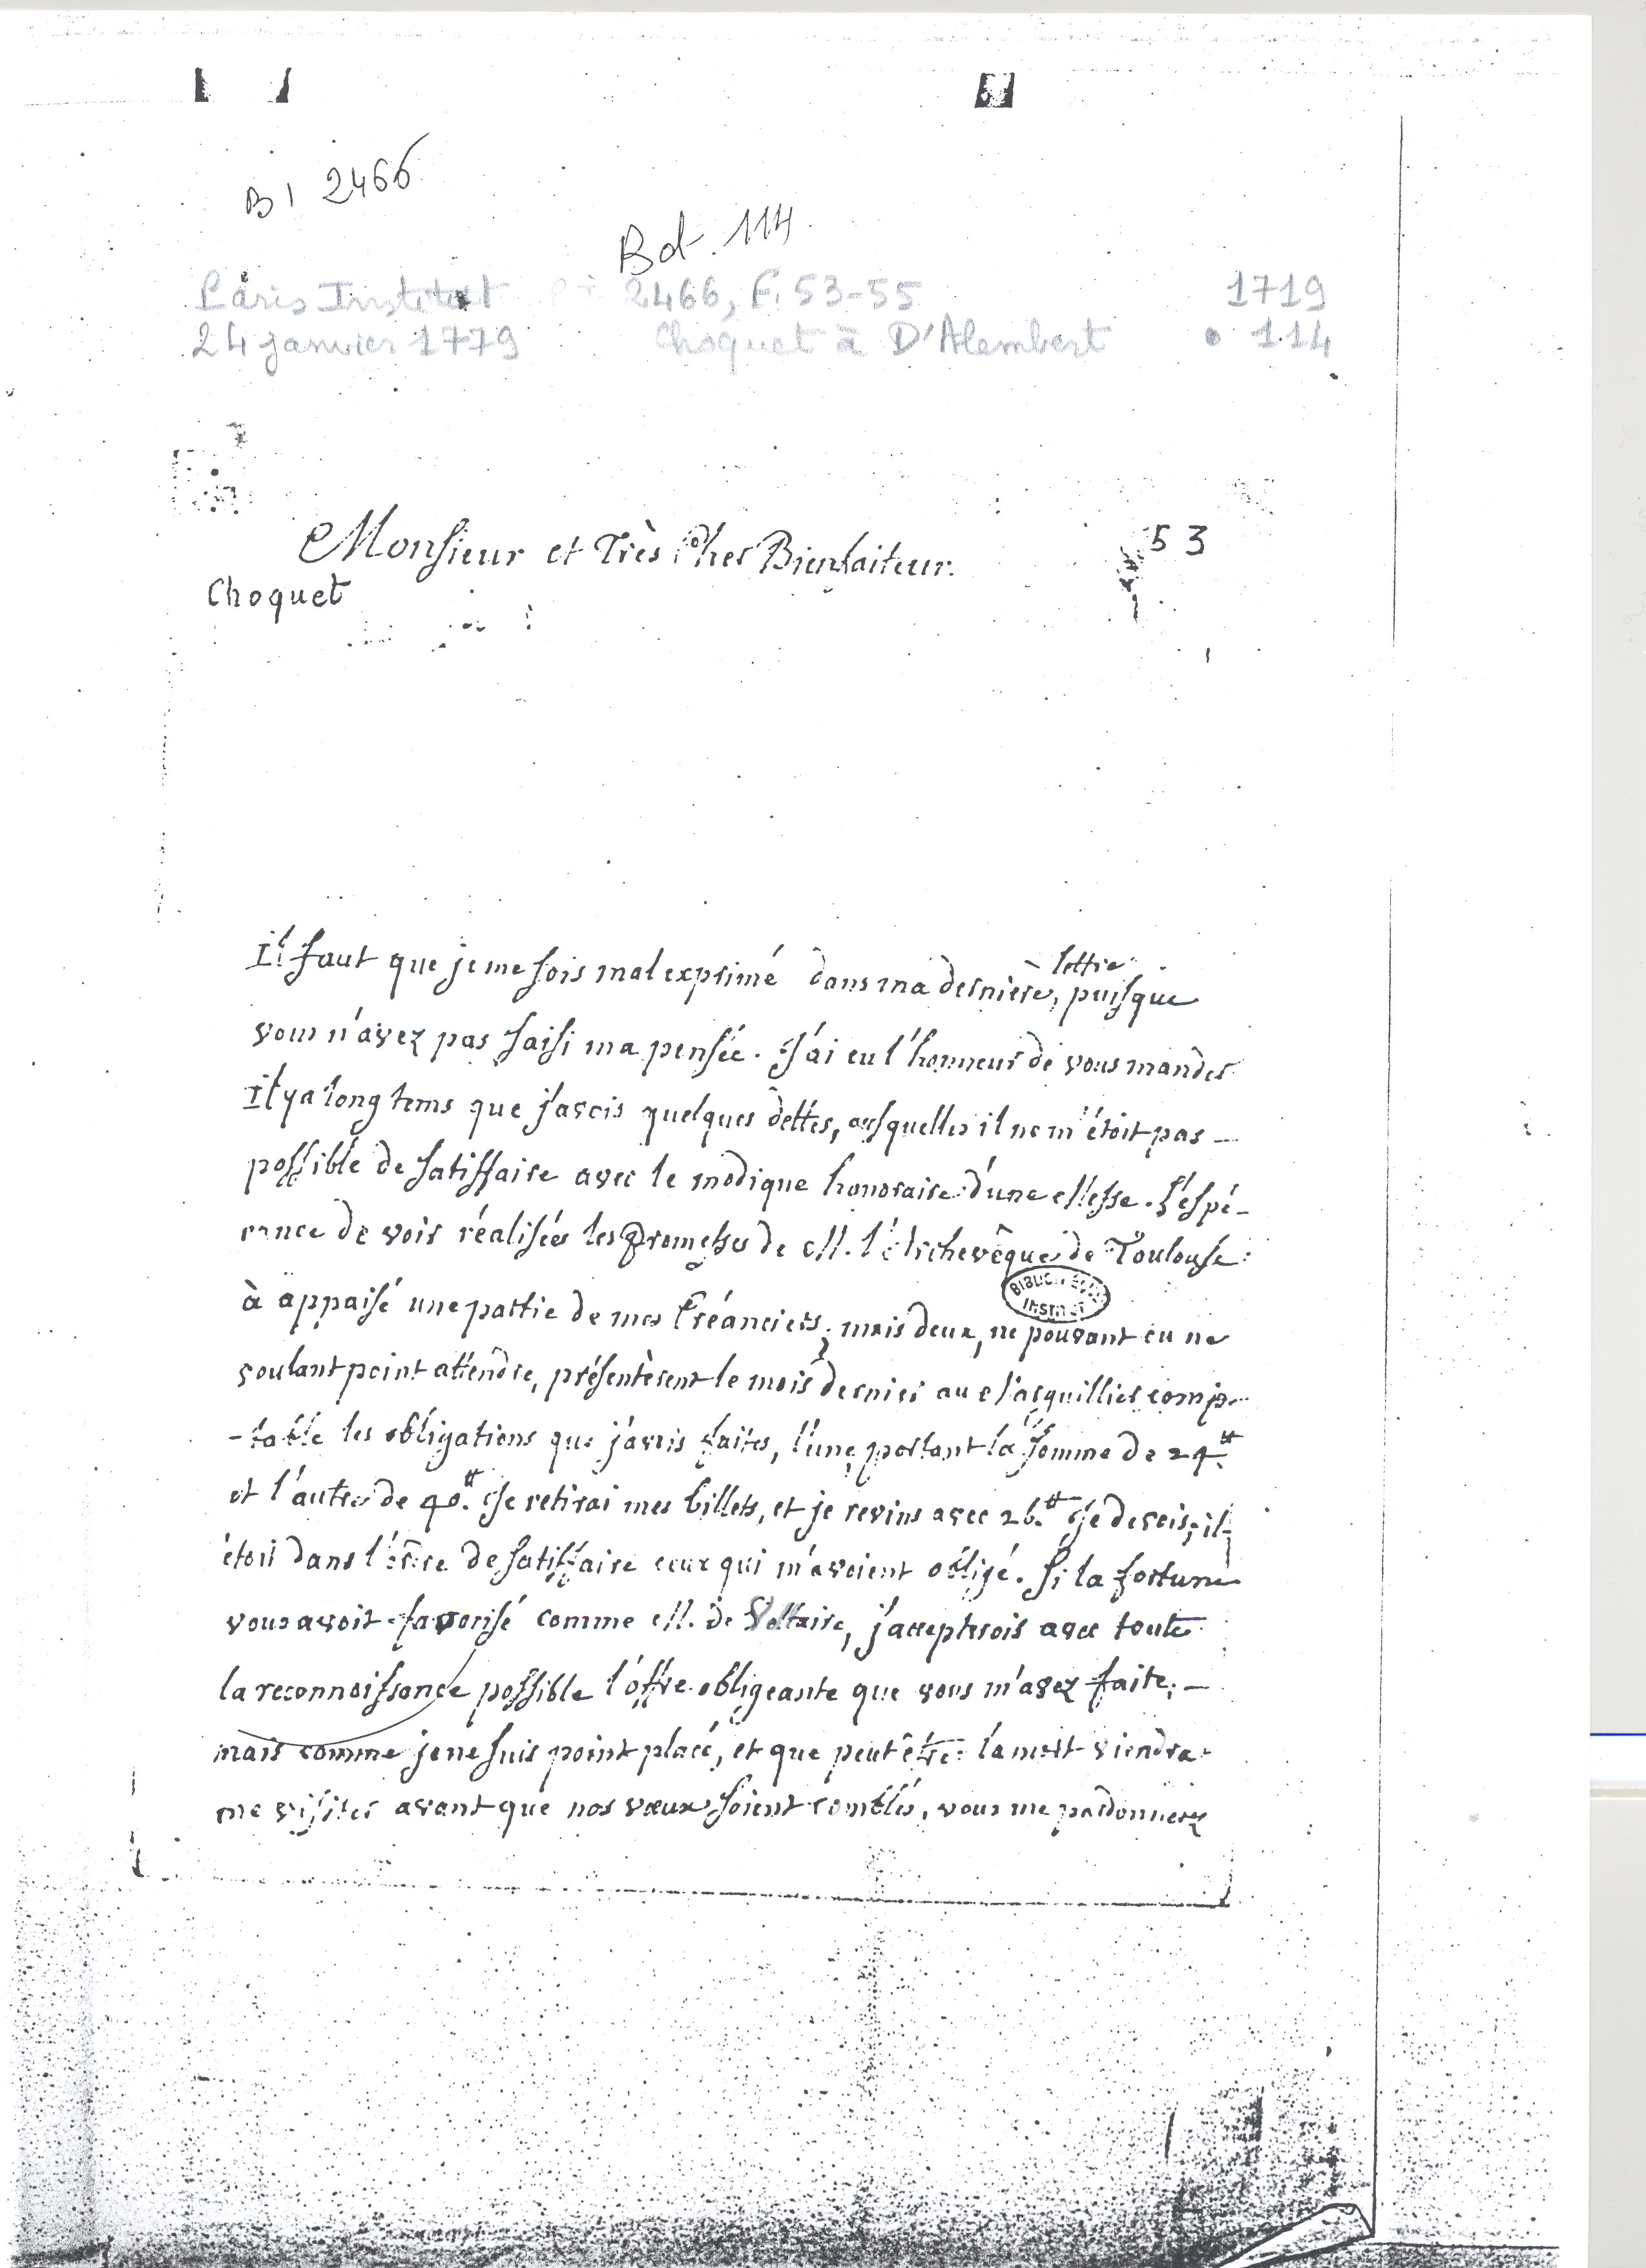 B I 2466
Bd. 114
Paris Institut 2466, F. 53-55 1719
24 janvier 1779 Choquet à D'Alembert 114
53
Monsieur et Très Cher Bienfaiteur.
Choquet
Il faut que je me sois mal exprimé dans ma dernière lettre, puisque
vous n'avez pas saisi ma pensée. J'ai eu l'honneur de vous mander
Il y a long tems que j'avois quelques dettes, auxquelles il ne m'étoit pas
possible de satisfaire avec le modique honoraire d'une Messe. L'espé-
rance de voir réalisées les promesses de M. l'Archevêque de Toulouse
BIBLIOTHÈQUE INSTITUT
à appaisé une partie de mes Créanciers; mais deux, ne pouvant ou ne
voulant point attendre, présentèrent le mois dernier au Marguillier comp-
-table les obligations que j'avois faites, l'une portant la somme de 24.tt
et l'autre de 40.tt Je retirai mes billets, et je revins avec 26.tt Je devois; il
étoit dans l'ordre de satisfaire ceux qui m'avoient obligé. Si la fortune
vous avoit favorisé comme M. de Voltaire, j'accepterois avec toute
la reconnoissance possible l'offre obligeante que vous m'avez faite;
mais comme je ne suis point placé, et que peut être la mort viendra
me visiter avant que nos vœux soient comblés, vous me pardonnerez